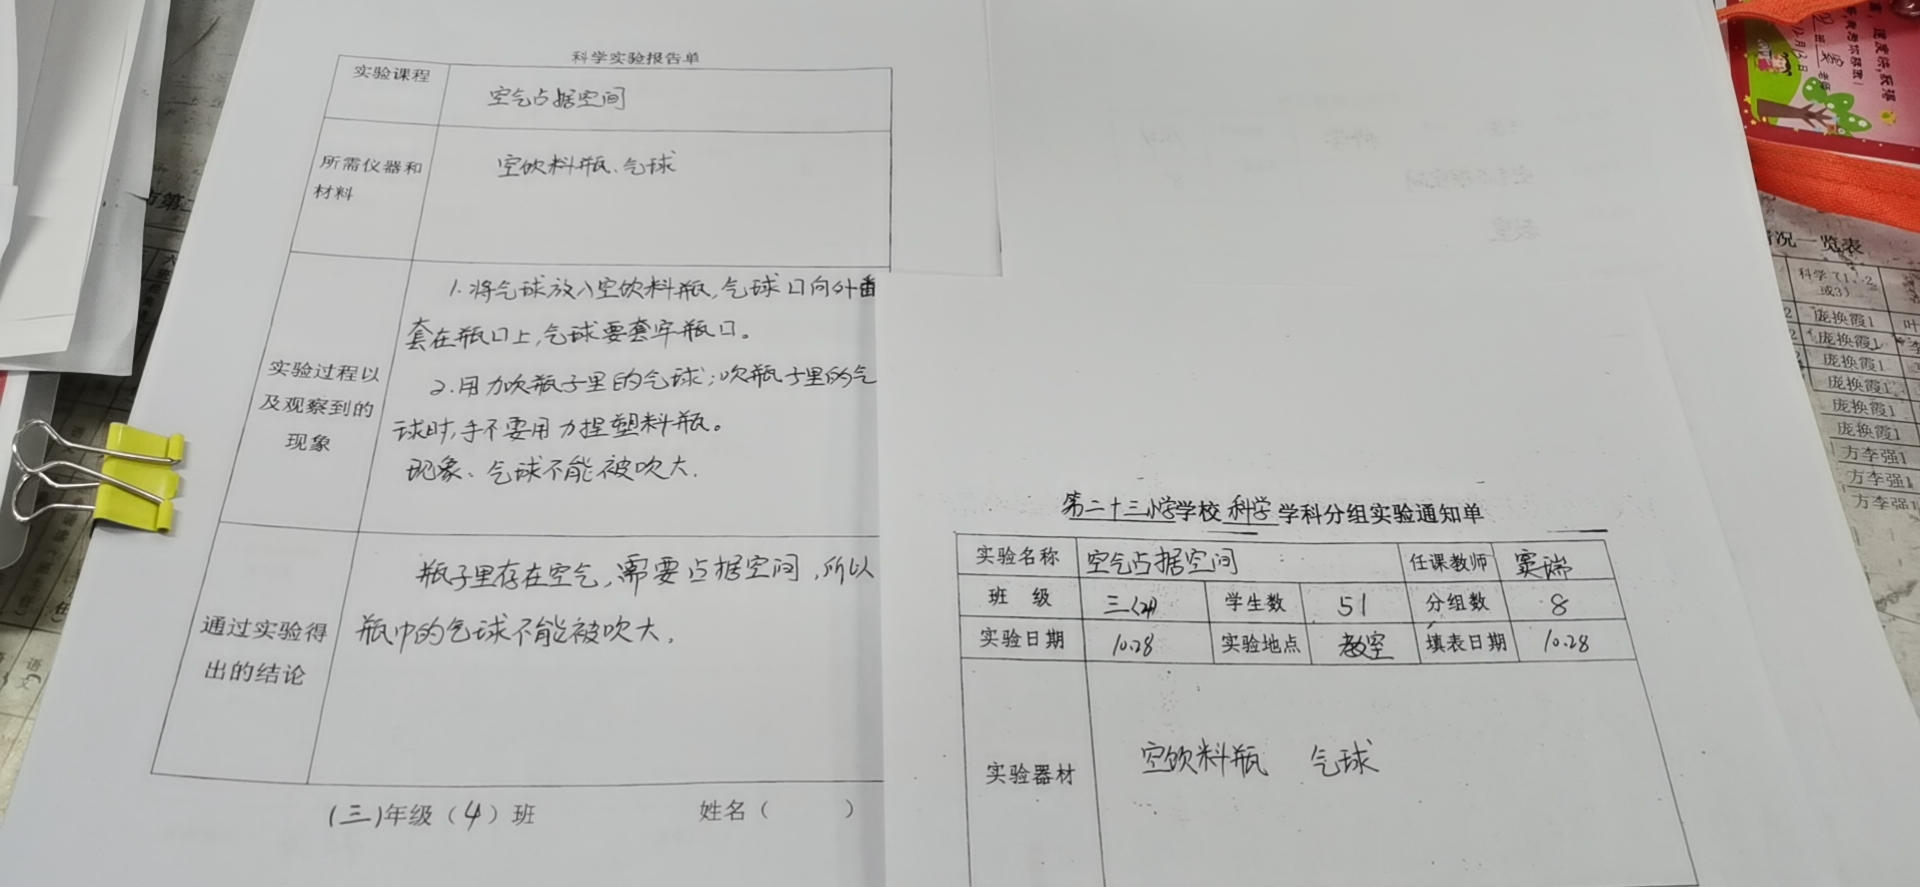 科学实验报告单
实验课程
空气占据空间
所需仪器和
材料
空饮料瓶、气球
实验过程以
及观察到的
现象
1.将气球放入空饮料瓶,气球口向外翻
套在瓶口上,气球要套牢瓶口。
2.用力吹瓶子里的气球;吹瓶子里的气
球时,手不要用力捏塑料瓶。
现象、气球不能被吹大.
通过实验得
出的结论
瓶子里存在空气,需要占据空间,所以
瓶中的气球不能被吹大.
(三)年级(4)班 姓名( )
第二十三小学学校科学学科分组实验通知单
实验名称 空气占据空间 任课教师 窦瑞
班 级 三(4) 学生数 51 分组数 8
实验日期 10.28 实验地点 教室 填表日期 10.28
实验器材
空饮料瓶 气球
情况一览表
科学(1、2
或3)
庞换霞1
庞换霞1
庞换霞1
庞换霞1
庞换霞1
庞换霞1
方李强1
方李强1
方李强1